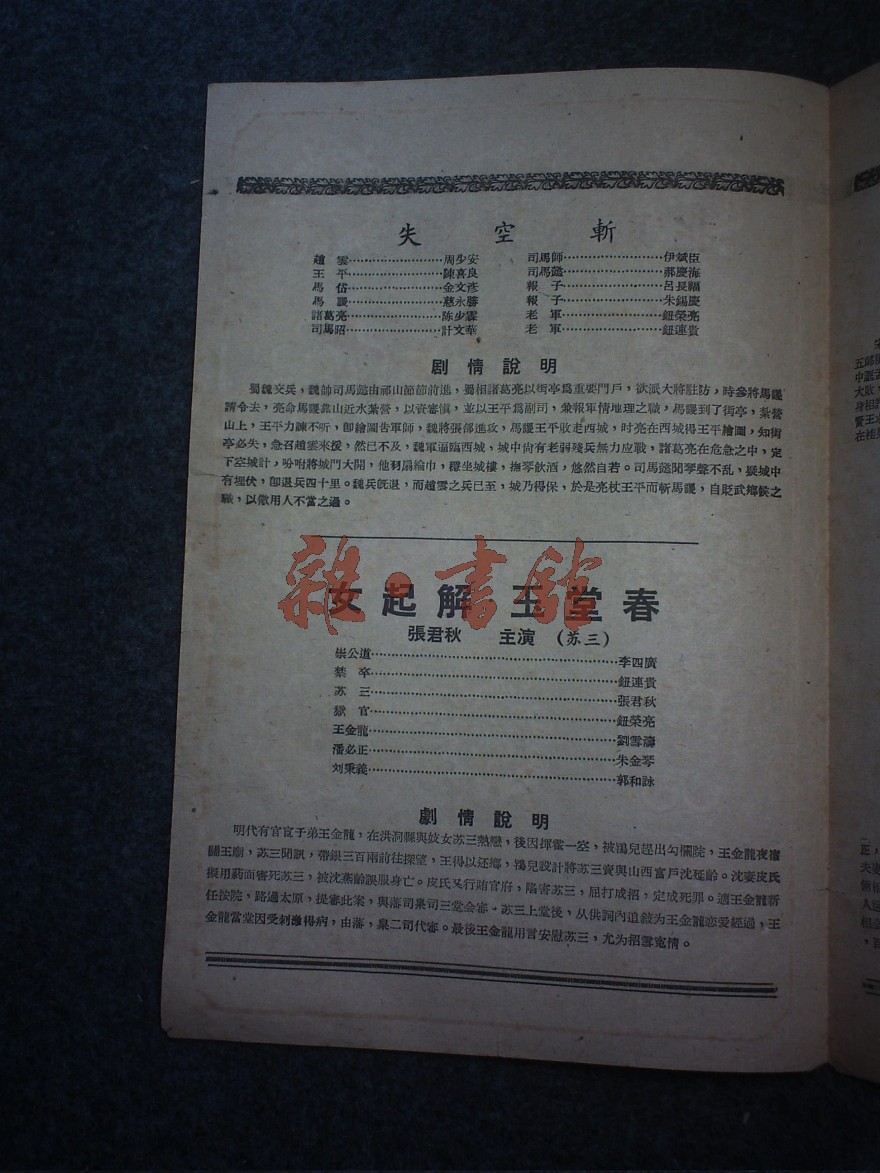 失空斬
趙雲……………………周少安
王平……………………陳喜良
馬岱……………………金文彥
馬謖……………………慈永勝
諸葛亮…………………陈少霖
司馬昭…………………計文華
司馬師…………………伊斌臣
司馬懿…………………郝慶海
報子……………………呂長福
報子……………………朱錫慶
老軍……………………鈕榮亮
老軍……………………鈕連貴
剧情說明
蜀魏交兵,魏帥司馬懿由祁山節節前進,蜀相諸葛亮以街亭爲重要門戶,欲派大將駐防,時參將馬謖
請令去,亮命馬謖靠山近水紮營,以資審愼,並以王平爲副司,兼報軍情地理之職,馬謖到了街亭,紮營
山上,王平力諫不听,卽繪圖告軍師,魏將張郃進攻,馬謖王平敗走西城,时亮在西城得王平繪圖,知街
亭必失,急召趙雲來援,然已不及,魏軍逼臨西城,城中尙有老弱殘兵無力应戰,諸葛亮在危急之中,定
下空城計,吩咐將城門大開,他羽扇綸巾,穩坐城樓,撫琴飲酒,悠然自若。司馬懿聞琴聲不乱,疑城中
有埋伏,卽退兵四十里。魏兵旣退,而趙雲之兵已至,城乃得保,於是亮杖王平而斬馬謖,自貶武鄉侯之
職,以儆用人不當之過。
雜·書館
女起解玉堂春
張君秋 主演(苏三)
崇公道……………………李四廣
禁卒……………………鈕連貴
苏三……………………張君秋
獄官……………………鈕榮亮
王金龍……………………劉雪濤
潘必正……………………朱金琴
刘秉義……………………郭和詠
劇情說明
明代有官宦子弟王金龍,在洪洞縣與妓女苏三熱戀,後因揮霍一空,被鴇兒趕出勾欄院,王金龍夜宿
關王廟,苏三聞訊,帶銀三百兩前往探望,王得以还鄉,鴇兒設計將苏三賣與山西富戶沈燕齡。沈妻皮氏
擬用葯面害死苏三,被沈燕齡誤服身亡。皮氏又行賄官府,陷害苏三,屈打成招,定成死罪。適王金龍新
任按院,路過太原,提審此案,與藩司臬司三堂会審。苏三上堂後,从供詞內追敍为王金龍恋爱經過,王
金龍當堂因受刺激得病,由藩,臬二司代審。最後王金龍用言安慰苏三,尤为招雪寃情。